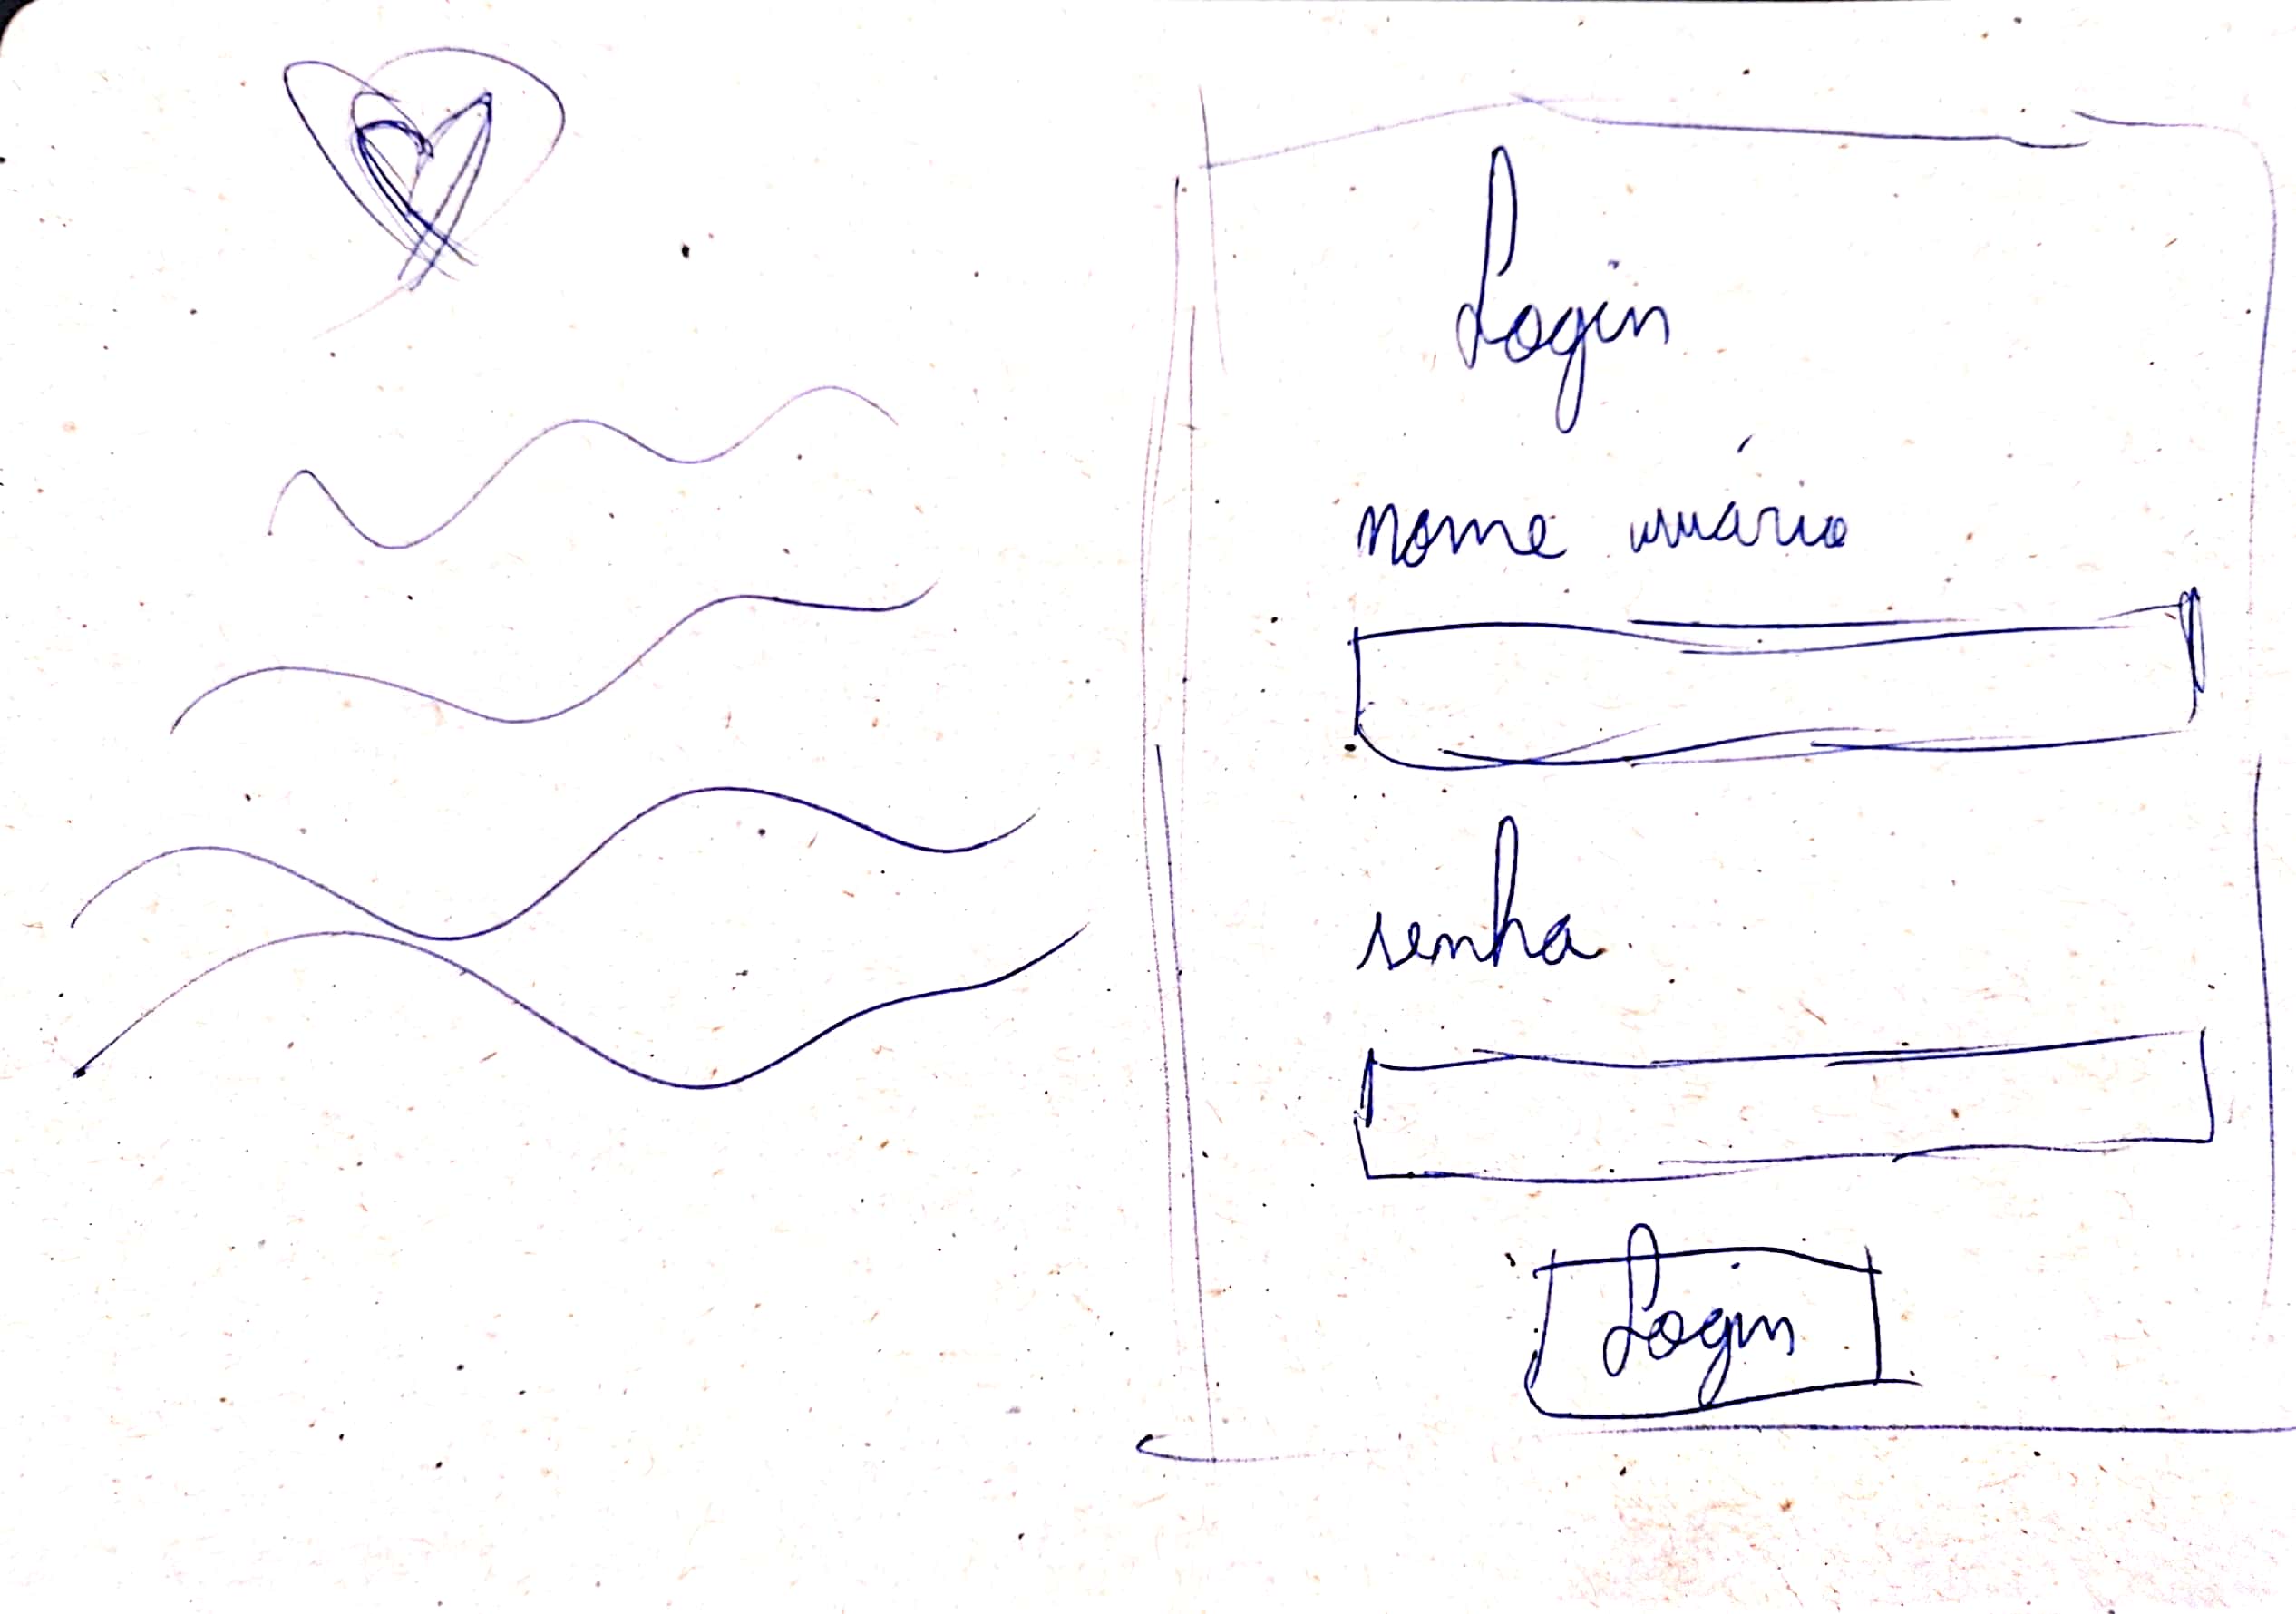 Login
nome usuário
senha
Login